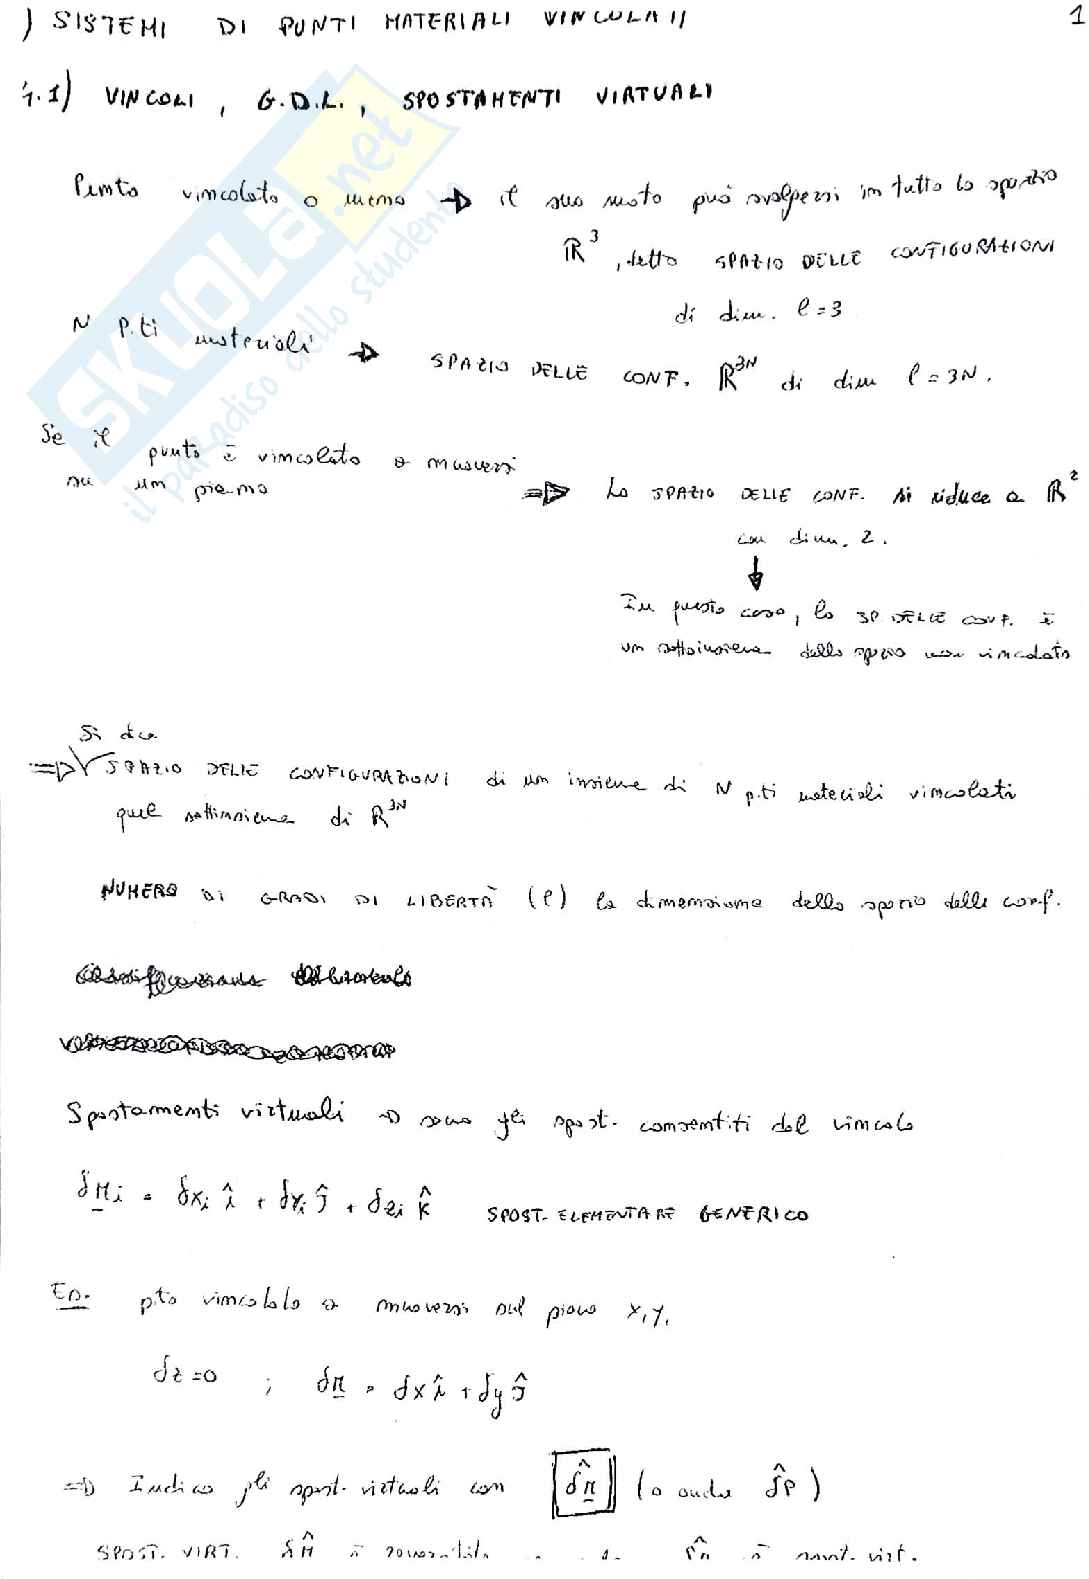 ) SISTEMI DI PUNTI MATERIALI VINCOLATI
1
4.1) VINCOLI, G.D.L., SPOSTAMENTI VIRTUALI
Punto vincolato o meno → il suo moto può svolgersi in tutto lo spazio
ℝ³, detto SPAZIO DELLE CONFIGURAZIONI
di dim. l=3
N P.ti materiali → SPAZIO DELLE CONF. ℝ^3N di dim l=3N.
Se il punto è vincolato a muoversi
su un piano ⇒ Lo SPAZIO DELLE CONF. si riduce a ℝ²
con dim. 2.
↓
In questo caso, lo SP DELLE CONF. è
un sottoinsieme dello spazio non vincolato
Si dice
⇒ SPAZIO DELLE CONFIGURAZIONI di un insieme di N p.ti materiali vincolati
quel sottoinsieme di ℝ^3N
NUMERO DI GRADI DI LIBERTÀ (l) la dimensione dello spazio delle conf.
Spostamenti virtuali ⇒ sono gli spost. consentiti dal vincolo
δr̲i = δxi î + δyi ĵ + δzi k̂ SPOST. ELEMENTARE GENERICO
Es. pto vincolato a muoversi sul piano x,y.
δz=0 ; δr̲ = δx î + δy ĵ
⇒ Indico gli spost. virtuali con δ̂r̲ (o anche δ̂P)
SPOST. VIRT.
SKUOLA.net
il paradiso dello studente